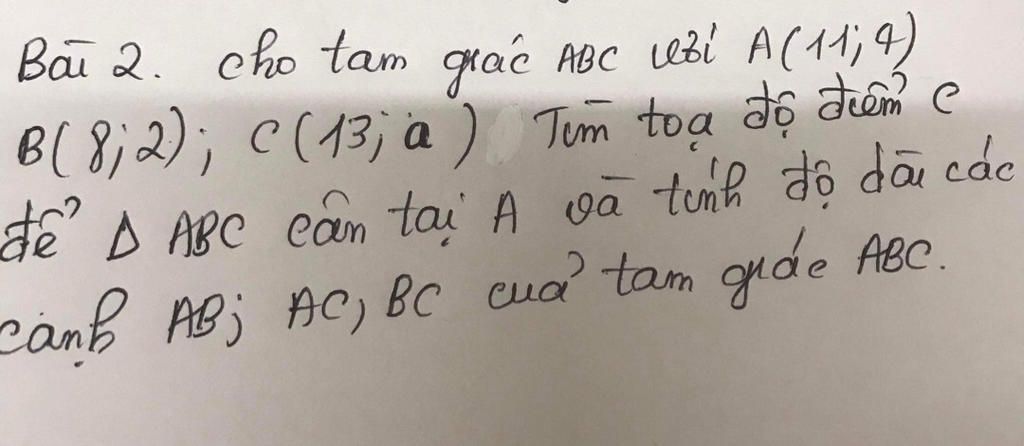 Bài 2. Cho tam giác ABC với A(11;4)
B(8;2); C(13;a) Tìm toạ độ điểm C
để Δ ABC cân tại A và tính độ dài các
cạnh AB; AC; BC của tam giác ABC.